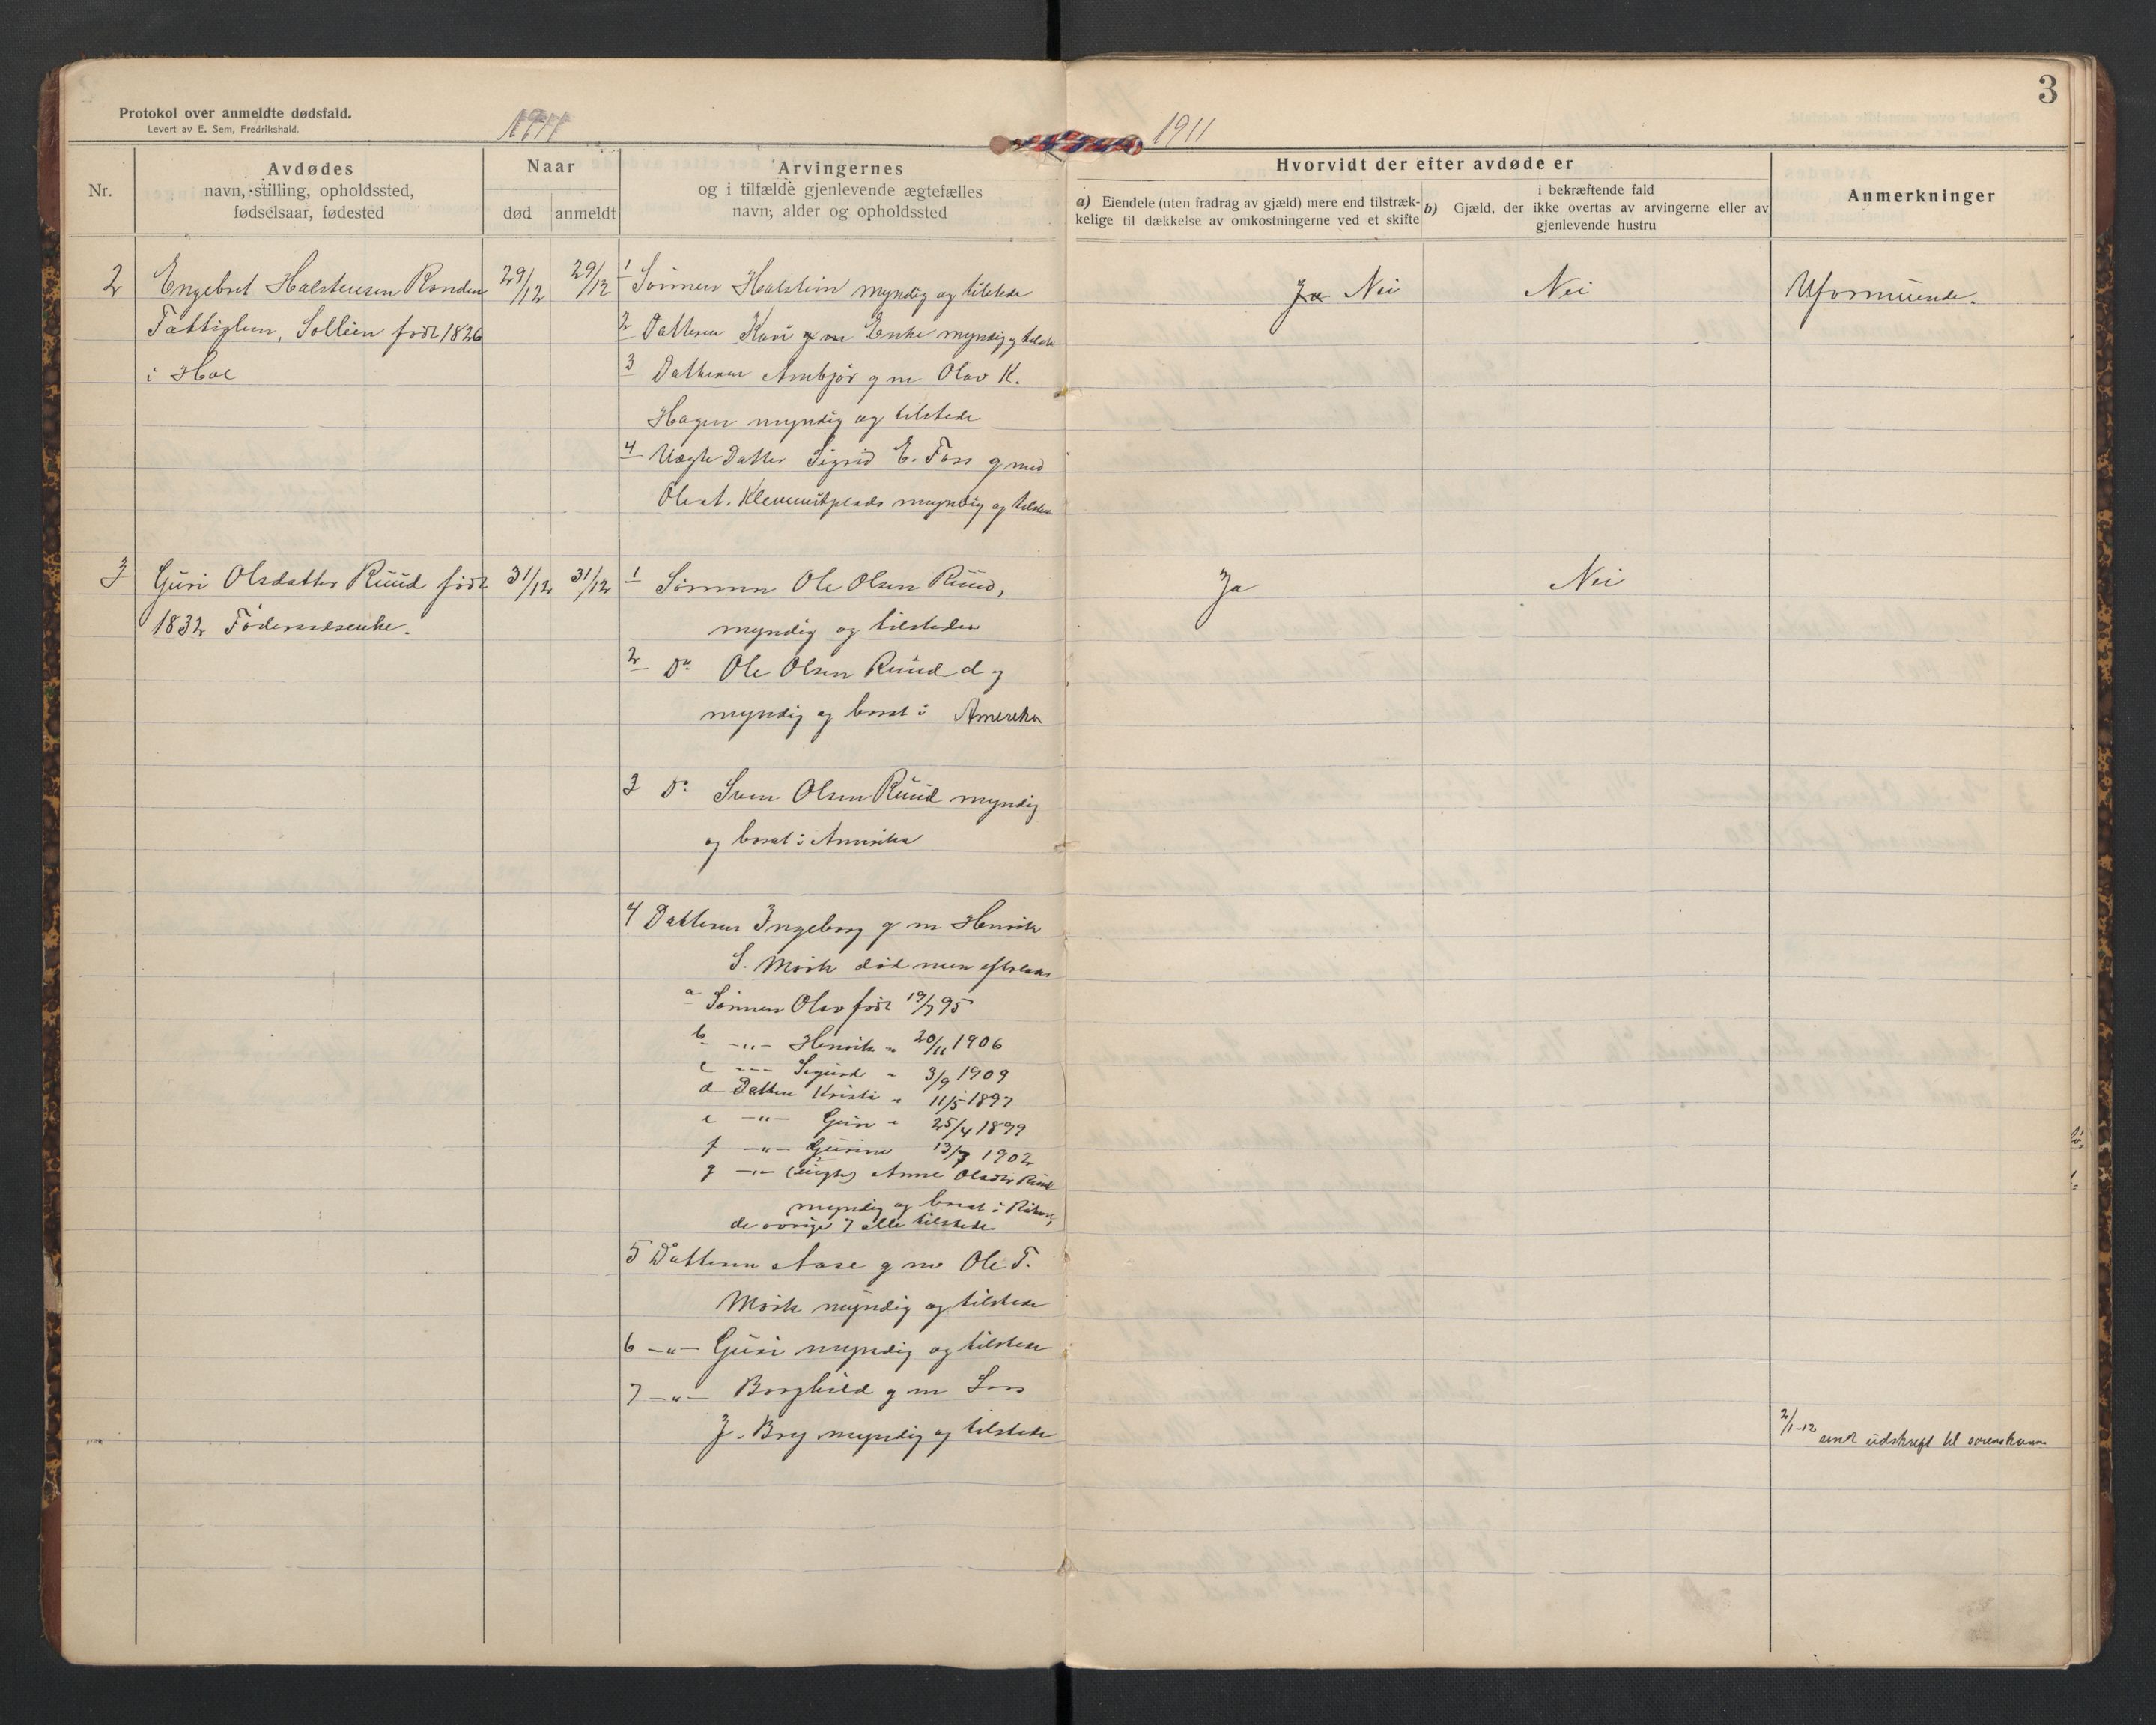 Protokol over anmeldte dødsfald.
Levert av E. Sem, Fredrikshald.
1911
1911
3
Nr.
Avdødes
navn, stilling, opholdssted,
fødselsaar, fødested
Naar
død
anmeldt
Arvingernes
og i tilfælde gjenlevende ægtefælles
navn, alder og opholdssted
Hvorvidt der efter avdøde er
a) Eiendele (uten fradrag av gjæld) mere end tilstræk-
kelige til dækkelse av omkostningerne ved et skifte
i bekræftende fald
b) Gjæld, der ikke overtas av arvingerne eller av
gjenlevende hustru
Anmerkninger
2
Engebret Halstensen Ronden
Fattiglem, Sollien født 1826
i Hol
29/12
29/12
1 Sønnen Halstein myndig og tilstede
2 Datteren Kari Enke myndig og tilstede
3 Datteren Ambjør g m Olav K.
Hagen myndig og tilstede
4 Uægte Datter Sigrid E. Foss g med
Ole A. Klemmitplads myndig og tilstede
Ja Nei
Nei
Uformuende.
3
Guri Olsdatter Ruud født
1832 Føderaadsenke.
31/12
31/12
1 Sønnen Ole Olsen Ruud,
myndig og tilstede
2 Do Ole Olsen Ruud d y
myndig og bosat i Amereka
3 Do Sven Olsen Ruud myndig
og bosat i Amerika
4 Datteren Ingeborg g m Henrik
S. Mørk død men efterlader
a Sønnen Olav født 19/7 95
b -"- Henrik " 20/11 1906
c -"- Sigurd " 3/9 1909
d Datter Kristi " 11/5 1897
e -"- Guri " 25/4 1899
f -"- Gurine 13/7 1902
g -"- (uægte) Anne Olsdtr Ruud
myndig og bosat i
de øvrige 7 alle tilstede
5 Datteren Aase g m Ole T.
Mørk myndig og tilstede
6 -"- Guri myndig og tilstede
7 -"- Borghild g m Lars
J. Bry myndig og tilstede
Ja
Nei
2/1-12
sendt udskrift til sorenskriver